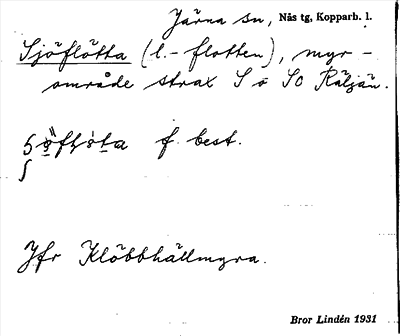 Järna sn, Nås tg, Kopparb. l.
Sjöflötta (l.-flotten), myr-
område strax S o SO Räljän.
f. best.
Jfr Klöbbhällmyra.
Bror Lindén 1931